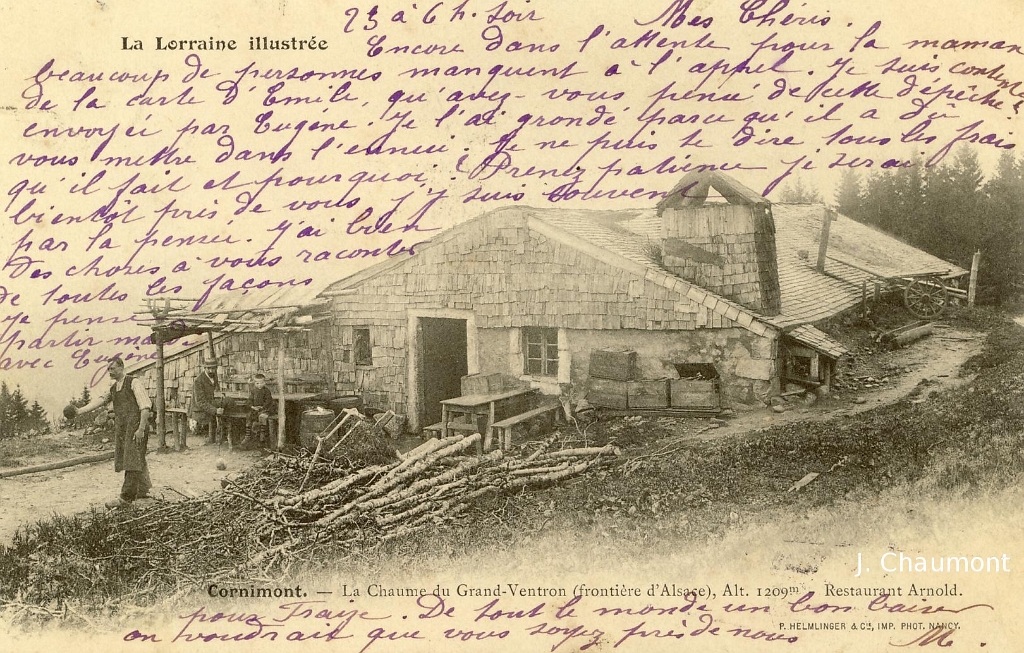 23 à 6 h. soir Mes Chéris.
La Lorraine illustrée
Encore dans l'attente pour la maman
beaucoup de personnes manquent à l'appel. Je suis contente
de la carte d'Emile, qu'avez-vous pensé de cette dépêche
envoyée par Eugène. Je l'ai grondé parce qu'il a dû
vous mettre dans l'ennui. Je ne puis te dire tous les frais
qu'il fait et pourquoi ? Prenez patience je serai
bientôt près de vous, j'y suis souvent
par la pensée. J'ai bien
des choses à vous raconter
de toutes les façons
Je pense
partir
avec Eugène
J. Chaumont
Cornimont. — La Chaume du Grand-Ventron (frontière d'Alsace), Alt. 1209m - Restaurant Arnold.
pour Fraize. De tout le monde un bon baiser
on voudrait que vous soyez près de nous
P. HELMLINGER & Cie, IMP. PHOT. NANCY.
M.